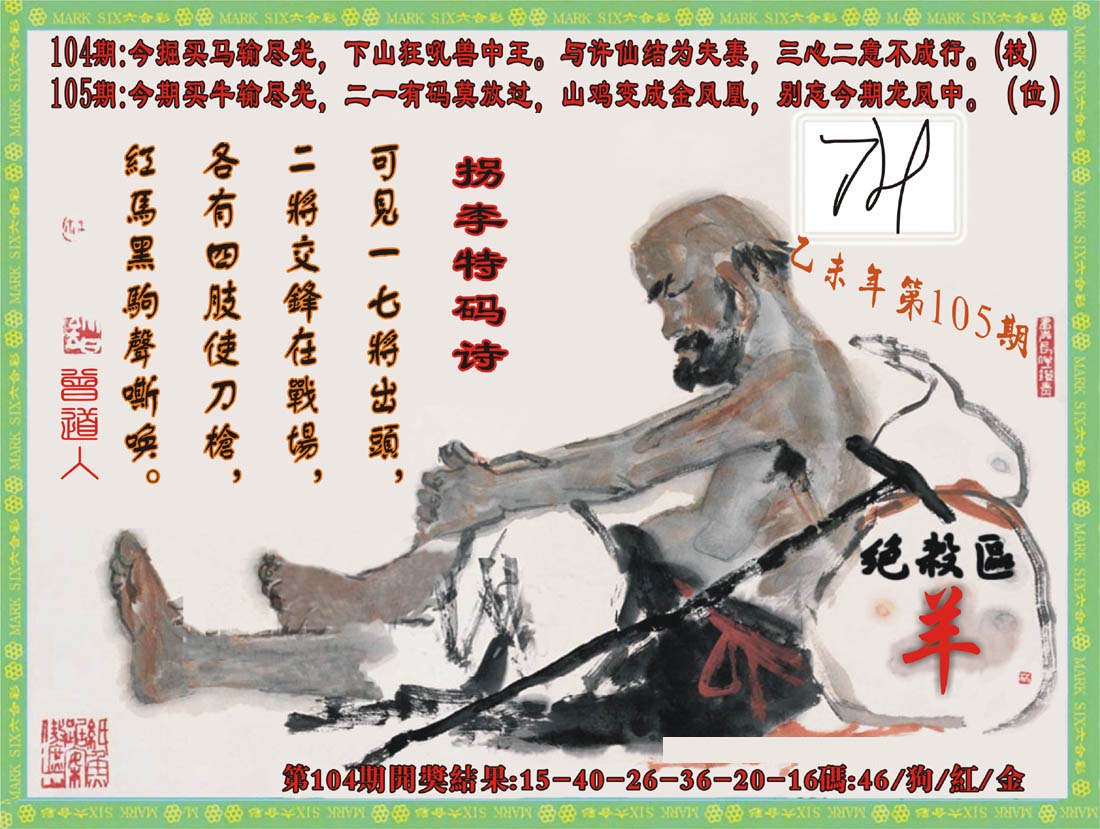 MARK SIX六合彩
104期:今掘买马输尽光，下山狂吼兽中王。与许仙结为夫妻，三心二意不成行。(枝)
105期:今期买牛输尽光，二一有码莫放过，山鸡变成金凤凰，别忘今期龙凤中。（位）
拐李特码诗
可見一七將出頭，
二將交鋒在戰場，
各有四肢使刀槍，
紅馬黑駒聲嘶喚。
曾道人
乙未年第105期
绝殺區
羊
第104期開獎結果:15-40-26-36-20-16碼:46/狗/紅/金